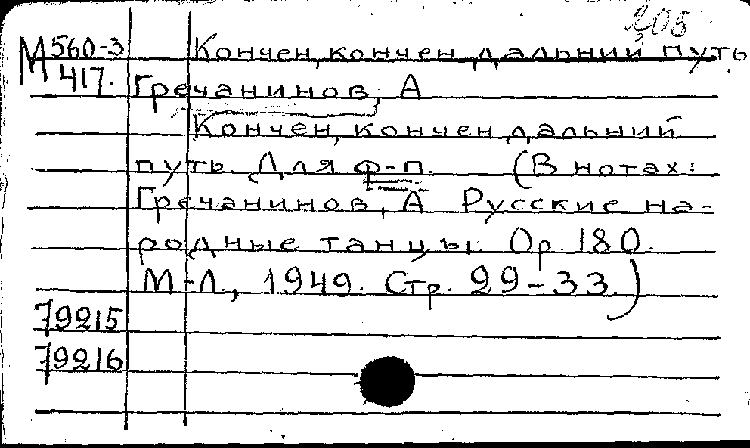 205
М 560-3 Кончен, кончен дальний путь
417. Гречанинов, А
Кончен, кончен дальний
путь. Для ф-п. (В нотах:
Гречанинов, А Русские на-
родные танцы. Op. 180.
М-Л., 1949. Стр. 29-33.)
79215
79216